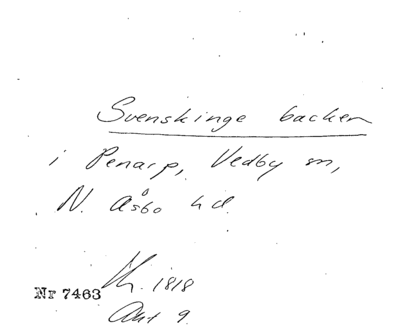 Svenskinge backen
i Penarp, Vedby sn,
N. Åsbo hd.
1818
Nr 7463
Akt 9